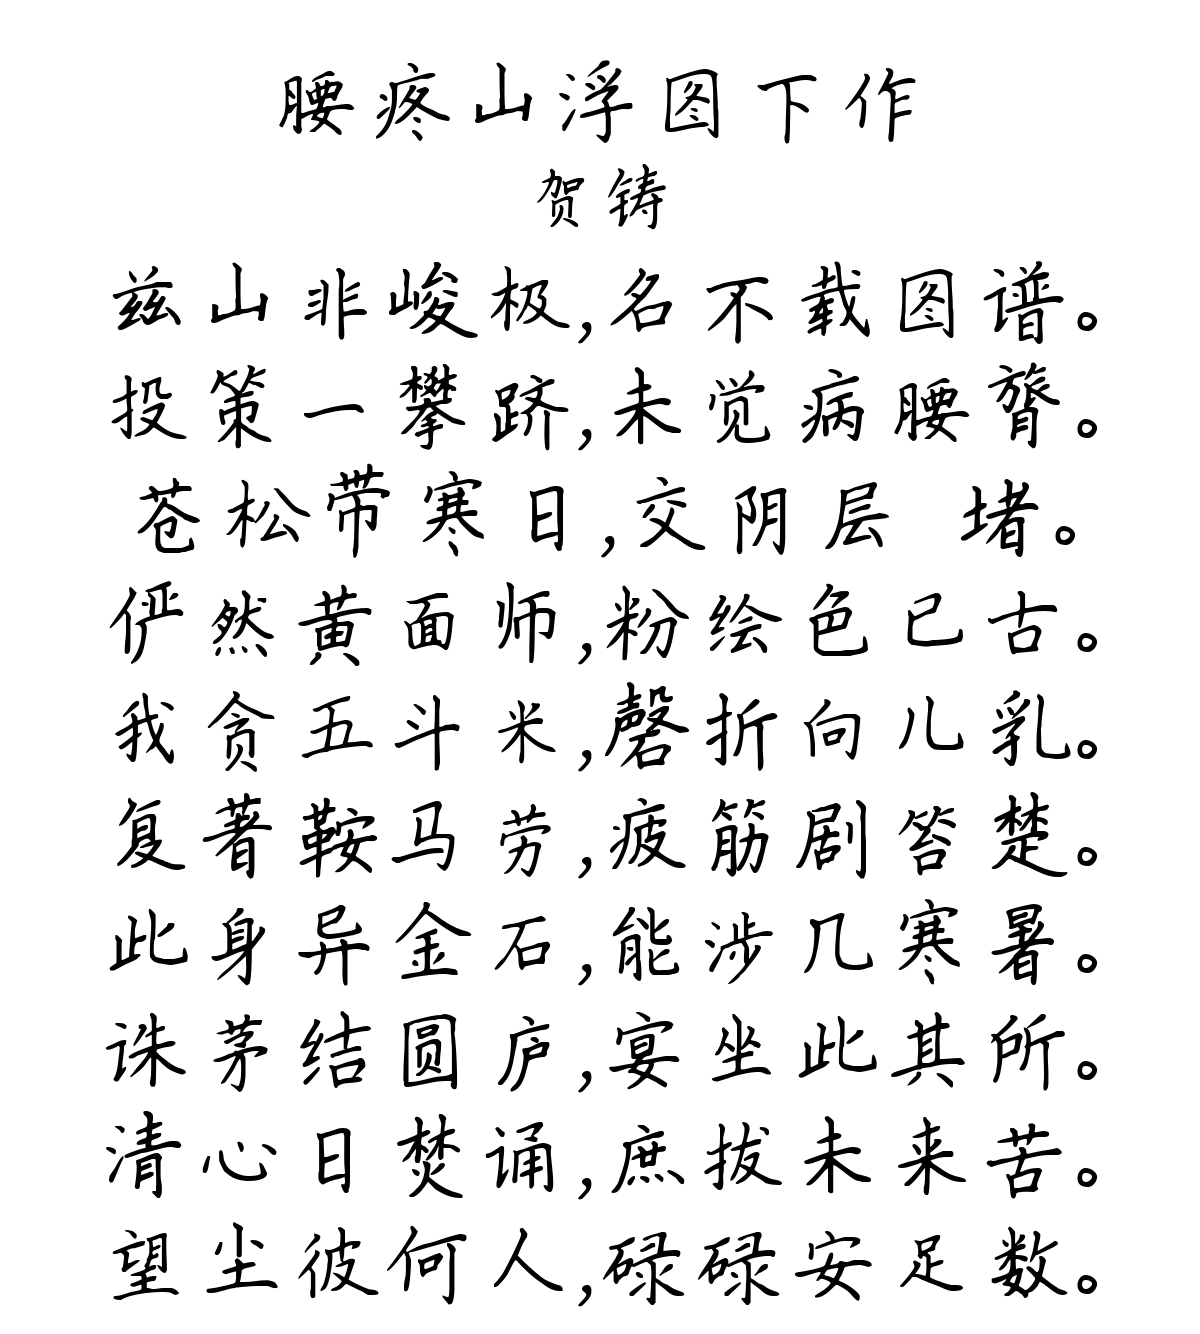 腰疼山浮图下作
贺铸
兹山非峻极,名不载图谱。
投策一攀跻,未觉病腰膂。
苍松带寒日,交阴层 堵。
俨然黄面师,粉绘色已古。
我贪五斗米,磬折向儿乳。
复著鞍马劳,疲筋剧笞楚。
此身异金石,能涉几寒暑。
诛茅结圆庐,宴坐此其所。
清心日焚诵,庶拔未来苦。
望尘彼何人,碌碌安足数。